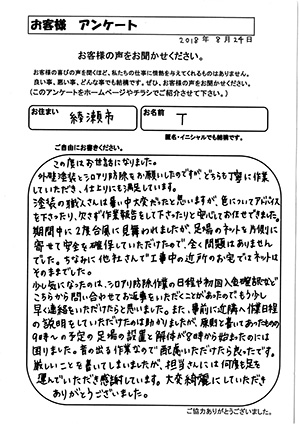 お客様 アンケート
2018年 8月24日
お客様の声をお聞かせください。
お客様の喜びの声を聞くほど、私たちの仕事に情熱を与えてくれるものはありません。
良い事、悪い事、どんな事でも結構です。ぜひ、お客様の声をお聞かせください。
(このアンケートをホームページやチラシでご紹介させて下さい。)
お住まい
綾瀬市
お名前
T
匿名・イニシャルでも結構です。
ご自由にお書きください。
この度はお世話になりました。
外壁塗装とシロアリ防除をお願いしたのですが、どちらも丁寧に作業
していただき、仕上りにも満足しています。
塗装の職人さんは暑い中大変だったと思いますが、色についてアドバイス
を下さったり、欠かさず作業報告をして下さったりと安心してお任せできました。
期間中に2度台風に見舞われましたが、足場のネットを片側に
寄せて安全を確保していただけたので、全く問題はありません
でした。ちなみに他社さんで工事中の近所のお宅ではネットは
そのままでした。
少し気になったのは、シロアリ防除作業の日程や初回入金確認など
こちらから問い合わせてお返事をいただくことがあったので、もう少し
早く連絡をいただけたらと思いました。また、事前に近隣へ作業日程
の説明をしていただけたのは助かりましたが、原則と書いてあったものの
9時〜の予定の足場の設置と解体が8時から始まったのには
困りました。音の出る作業なので配慮いただけたら良かったです。
厳しいことを書いてしまいましたが、担当さんには何度も足を
運んでいただき感謝しています。大変綺麗にしていただき
ありがとうございました。
ご協力ありがとうございました。